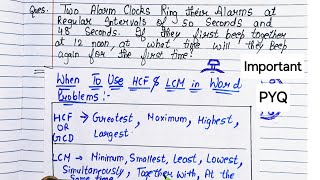 Ques. Two Alarm Clocks Ring their Alarms at
Regular Intervals of 50 Seconds and
48 Seconds. If they first beep together
at 12 noon, at what time will they beep
again for the first time?
Important
When To Use HCF & LCM in Word
Problems:-
PYQ
HCF → Greatest, Maximum, Highest,
OR
GCD Largest
LCM → Minimum, Smallest, Least, Lowest,
Simultaneously, Together with, At the
Same time